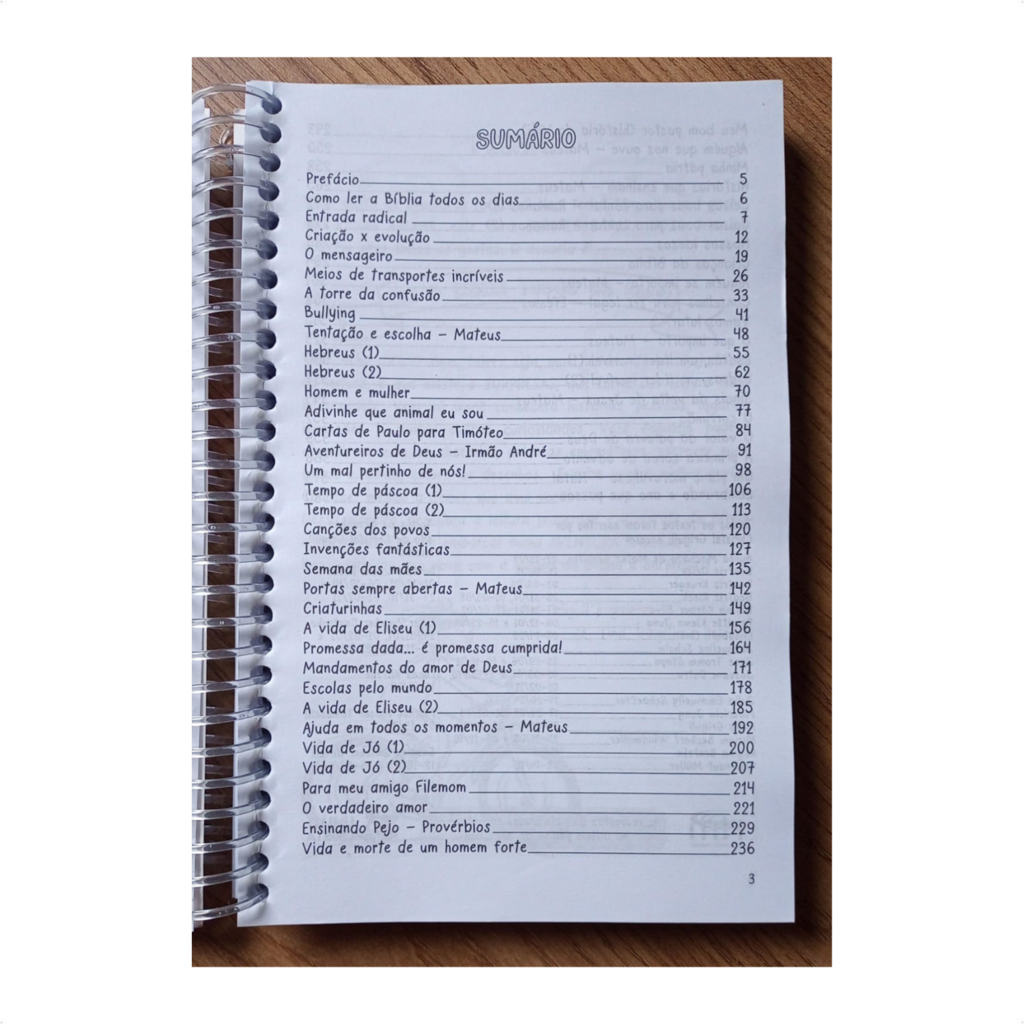 SUMÁRIO
Prefácio 5
Como ler a Bíblia todos os dias 6
Entrada radical 7
Criação x evolução 12
O mensageiro 19
Meios de transportes incríveis 26
A torre da confusão 33
Bullying 41
Tentação e escolha – Mateus 48
Hebreus (1) 55
Hebreus (2) 62
Homem e mulher 70
Adivinhe que animal eu sou 77
Cartas de Paulo para Timóteo 84
Aventureiros de Deus – Irmão André 91
Um mal pertinho de nós! 98
Tempo de páscoa (1) 106
Tempo de páscoa (2) 113
Canções dos povos 120
Invenções fantásticas 127
Semana das mães 135
Portas sempre abertas – Mateus 142
Criaturinhas 149
A vida de Eliseu (1) 156
Promessa dada... é promessa cumprida! 164
Mandamentos do amor de Deus 171
Escolas pelo mundo 178
A vida de Eliseu (2) 185
Ajuda em todos os momentos – Mateus 192
Vida de Jó (1) 200
Vida de Jó (2) 207
Para meu amigo Filemom 214
O verdadeiro amor 221
Ensinando Pejo – Provérbios 229
Vida e morte de um homem forte 236
3